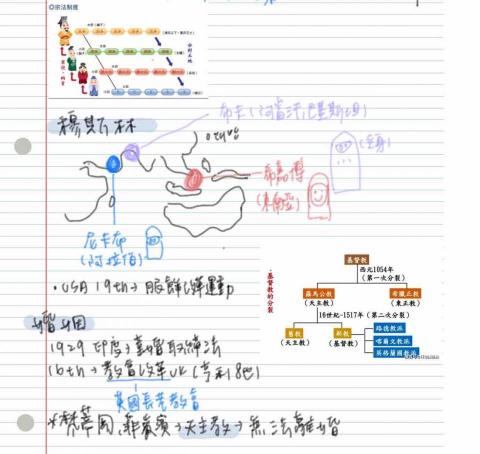 ◎宗法制度
穆斯林
布卡(阿富汗,巴基斯坦)
(全身)
希賈博
(東南亞)
尼卡布
(阿拉伯)
• USA 19th→服飾改革運動
婚姻
1929 印度→童婚取締法
16th→教會改革UK(亨利8世)
英國長老教會
*梵蒂岡,菲律賓→天主教→無法離婚
•基督教的分裂
基督教
西元1054年
(第一次分裂)
羅馬公教
(天主教)
希臘正教
(東正教)
16世紀-1517年(第二次分裂)
舊教
(天主教)
新教
(基督教)
路德教派
喀爾文教派
英格蘭國教派